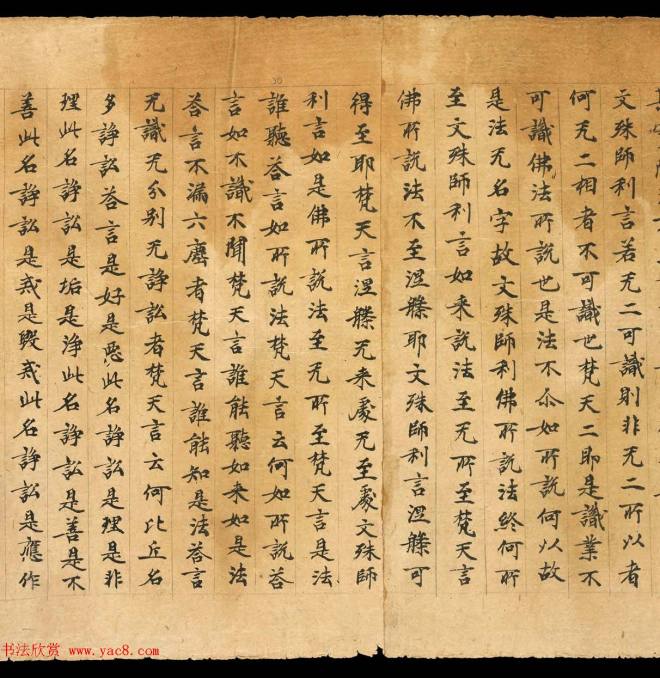 文殊師利言若无二可識則非无二所以者
何无二相者不可識也梵天二即是識業不
可識佛法所說也是法不尒如所說何以故
是法无名字故文殊師利佛所說法終何所
至文殊師利言如来說法至无所至梵天言
佛所說法不至涅槃耶文殊師利言涅槃可
得至耶梵天言涅槃无来處无至處文殊師
利言如是佛所說法至无所至梵天言是法
誰聽荅言如所說法梵天言云何如所說荅
言如不識不聞梵天言誰能聽如来如是法
荅言不漏六塵者梵天言誰能知是法荅言
无識无分别无諍訟者梵天言云何比丘名
多諍訟荅言是好是惡此名諍訟是理是非
理此名諍訟是垢是淨此名諍訟是善是不
善此名諍訟是戒是毀戒此名諍訟是應作
书法欣赏 www.yac8.com